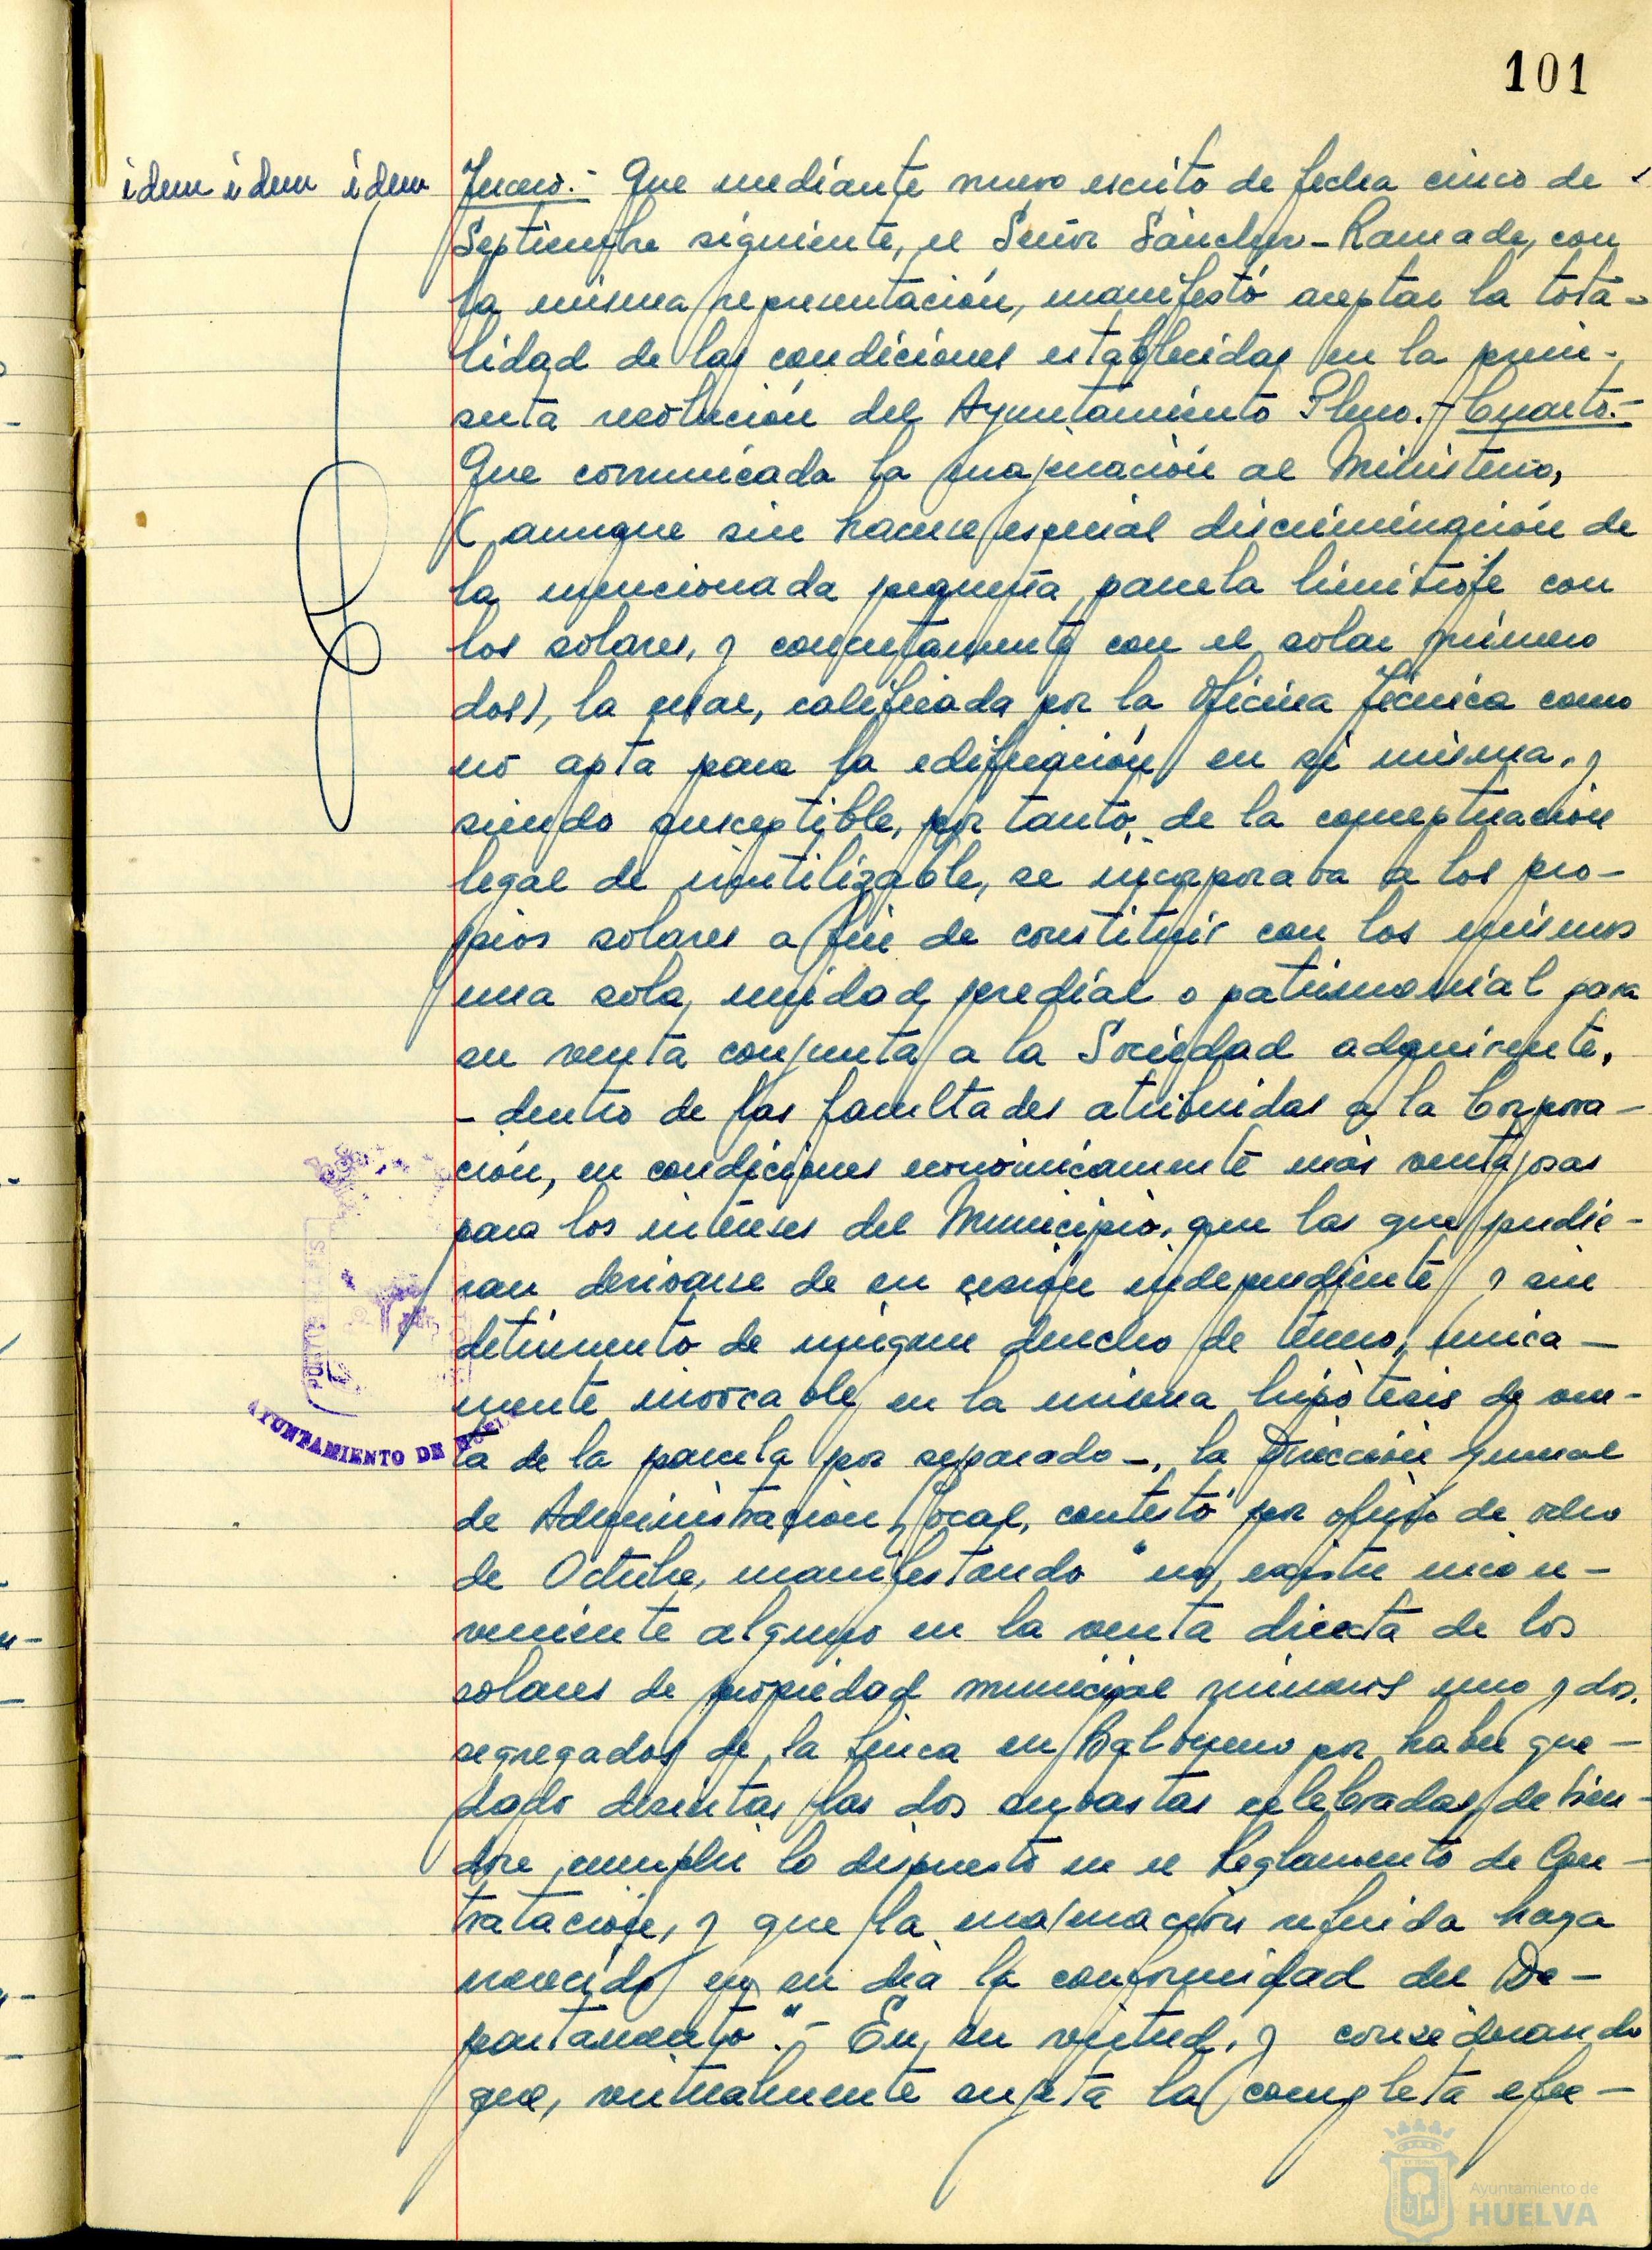 101
idem idem idem
Tercero.- Que mediante nuevo escrito de fecha cinco de
Septiembre siguiente, el Señor Sánchez-Ramade, con
la misma representación, manifestó aceptar la tota-
lidad de las condiciones establecidas en la prein-
serta resolución del Ayuntamiento Pleno.- Cuarto.-
Que comunicada la enajenación al Ministerio,
(aunque sin hacerse especial discriminación de
la mencionada pequeña parcela limítrofe con
los solares, y conjuntamente con el solar número
dos), la cual, calificada por la Oficina Técnica como
no apta para la edificación en sí misma, y
siendo susceptible, por tanto, de la conceptuación
legal de inutilizable, se incorporaba a los pro-
pios solares a fin de constituir con los mismos
una sola unidad predial o patrimonial para
su venta conjunta a la Sociedad adquirente,
- dentro de las facultades atribuidas a la Corpora-
ción, en condiciones económicamente más ventajosas
para los intereses del Municipio, que las que pudie-
ran derivarse de su cesión independiente y sin
detrimento de ningún derecho de tercero, única-
mente invocable en la misma hipótesis de ven-
ta de la parcela por separado -, la Dirección General
de Administración Local, contestó por oficio de ocho
de Octubre, manifestando "no existir incon-
veniente alguno en la venta directa de los
solares de propiedad municipal números uno y dos,
segregados de la finca en Balbueno por haber que-
dado desiertas las dos subastas celebradas, debién-
dose cumplir lo dispuesto en el Reglamento de Con-
tratación, y que la enajenación referida haya
merecido en su día la conformidad del De-
partamento".- En su virtud, y considerando
que, virtualmente sujeta la completa efec-
AYUNTAMIENTO DE
Ayuntamiento de
HUELVA